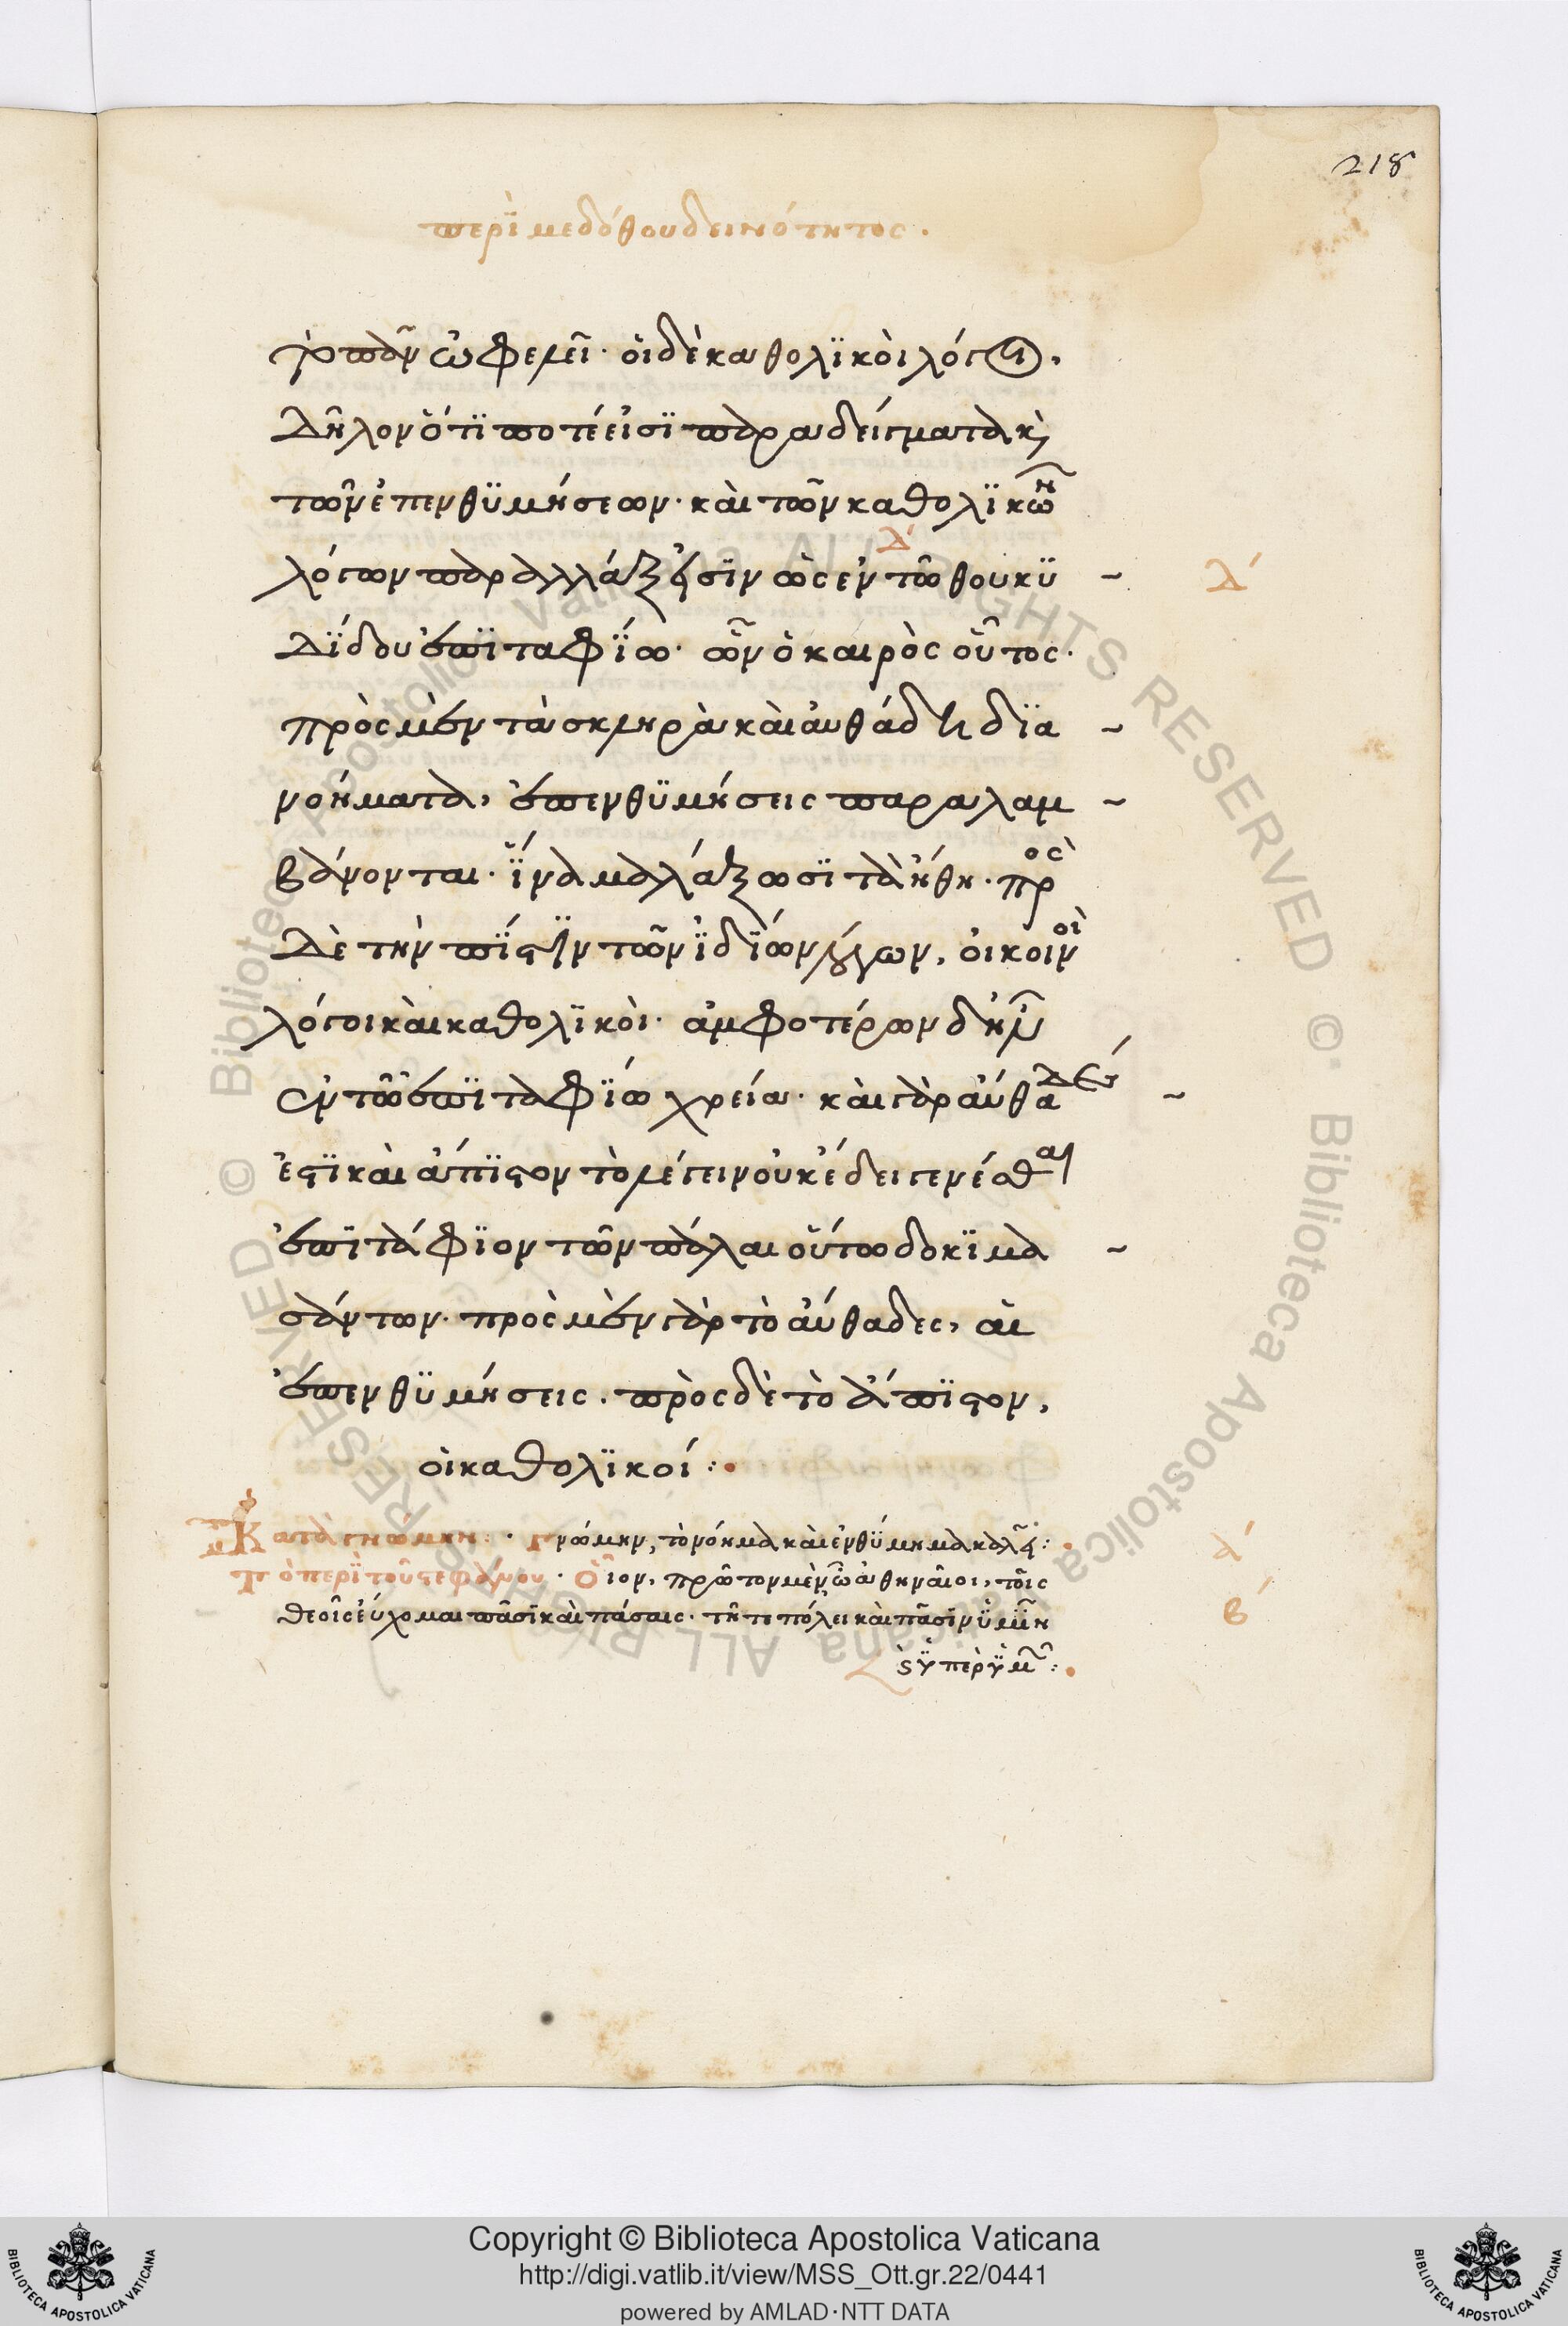 218
περὶ μεθόδου δεινότητος.
γὰρ πᾶν ὠφελεῖ· οἱ δὲ καθολϊκοὶ λόγοι,
δῆλον ὅτϊ ποτέ εἰσϊ παραδείγματα καὶ
τῶν ἐπενθϋμήσεων· καὶ τῶν καθολϊκῶν
λόγων παραλλάξεσϊν ὡς ἐν τῶ θουκϋ
δ´
δ´
δϊδου ἐπϊταφϊω· ὧν ὁ καιρὸς οὗτος·
πρὸς μὲν τὰ σκληρὰ καὶ αὐθάδη δϊα
νοήματα, ἐπενθϋμήσεις παραλαμ
βάνονται· ἵνα μαλάξωσϊ τὰ ἤθη· πρὸς
δὲ τὴν πίστϊν τῶν ἰδϊων λόγων, οἱ κοινοὶ
λόγοι καὶ καθολϊκοὶ· ἀμφοτέρων δὴ
ἐν τῶ ἐπϊταφϊω χρεία· καὶ γὰρ αὔθαδες
ἐστϊ καὶ ἄπϊστον τὸ λέγειν οὐκ ἔδει γενέσθαι
ἐπϊτάφϊον τῶν πάλαι οὕτω δοκϊμα
σάντων· πρὸς μὲν γὰρ τὸ αὔθαδες, αἱ
ἐπενθϋμήσεις· πρὸς δὲ τὸ ἄπϊστον,
οἱ καθολϊκοί :·
Κατὰ γνώμην· γνώμην, τὸ νόημα καὶ ἐνθϋμημα καλεῖ :·
α´
Τὸ περὶ τοῦ στεφάνου· οἷον, πρῶτον μὲν ὦ ἀθηναῖοι, τοῖς
θεοῖς εὔχομαι πᾶσϊ καὶ πάσαις· τῆ τε πόλει καὶ πᾶσϊν ὑμῖν
β´
ὑπὲρ ὑμῶν :·
Copyright © Biblioteca Apostolica Vaticana
http://digi.vatlib.it/view/MSS_Ott.gr.22/0441
powered by AMLAD·NTT DATA
BIBLIOTECA APOSTOLICA VATICANA
BIBLIOTECA APOSTOLICA VATICANA
© Biblioteca Apostolica Vaticana ALL RIGHTS RESERVED
© Biblioteca Apostolica Vaticana ALL RIGHTS RESERVED